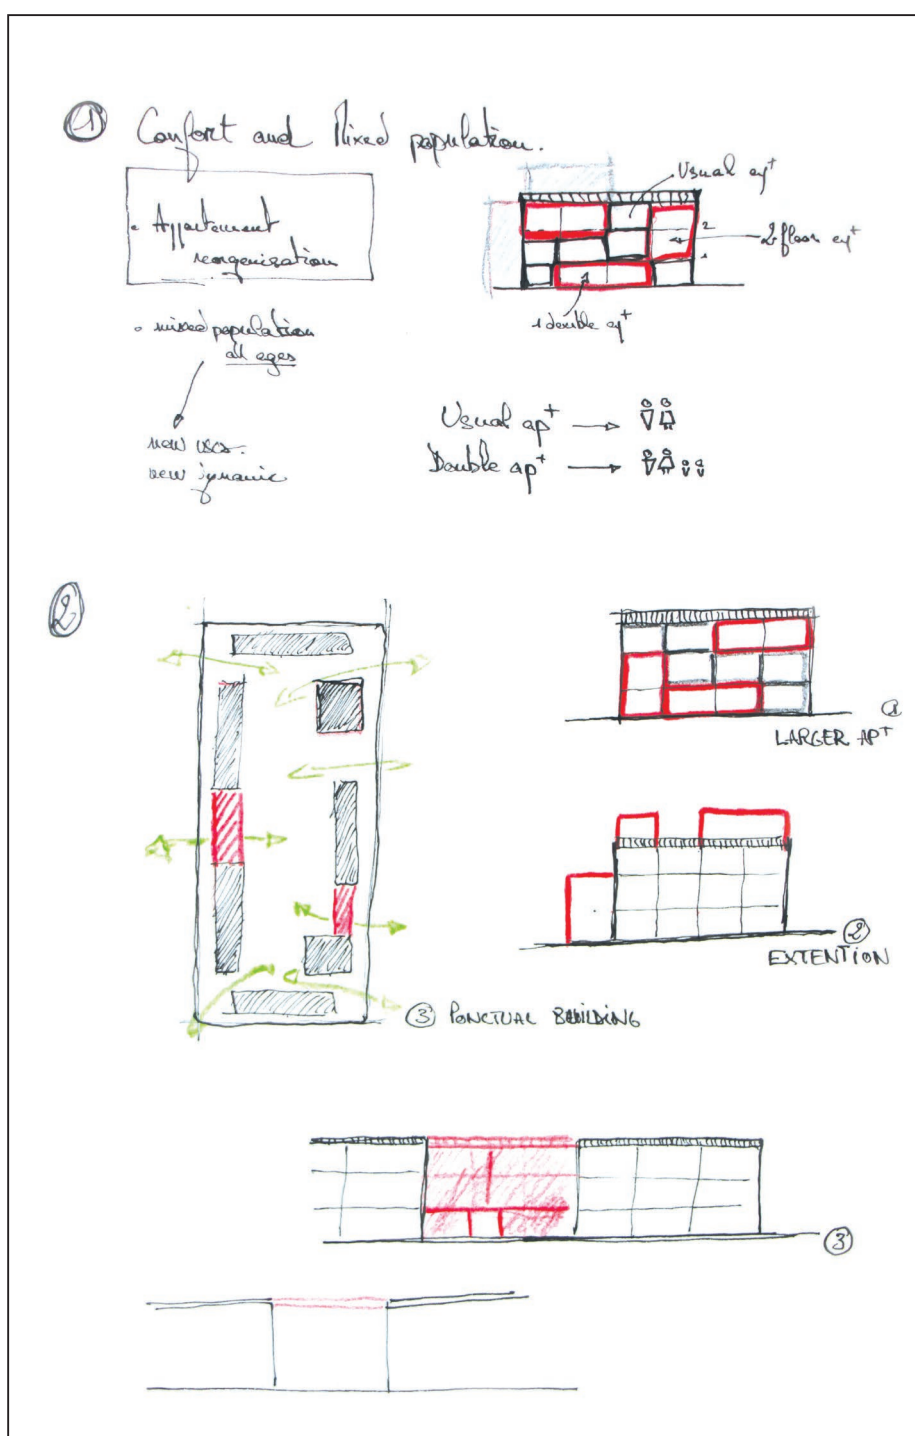 1 Confort and Mixed population.
• Appartement
reorganisation
• mixed population
all ages
new uses.
new dynamic
Usual ap^t
2
2 floor ap^t
1 double ap^t
Usual ap^t →
Double ap^t →
2
1
LARGER AP^T
2
EXTENTION
3 PONCTUAL BUILDING
3